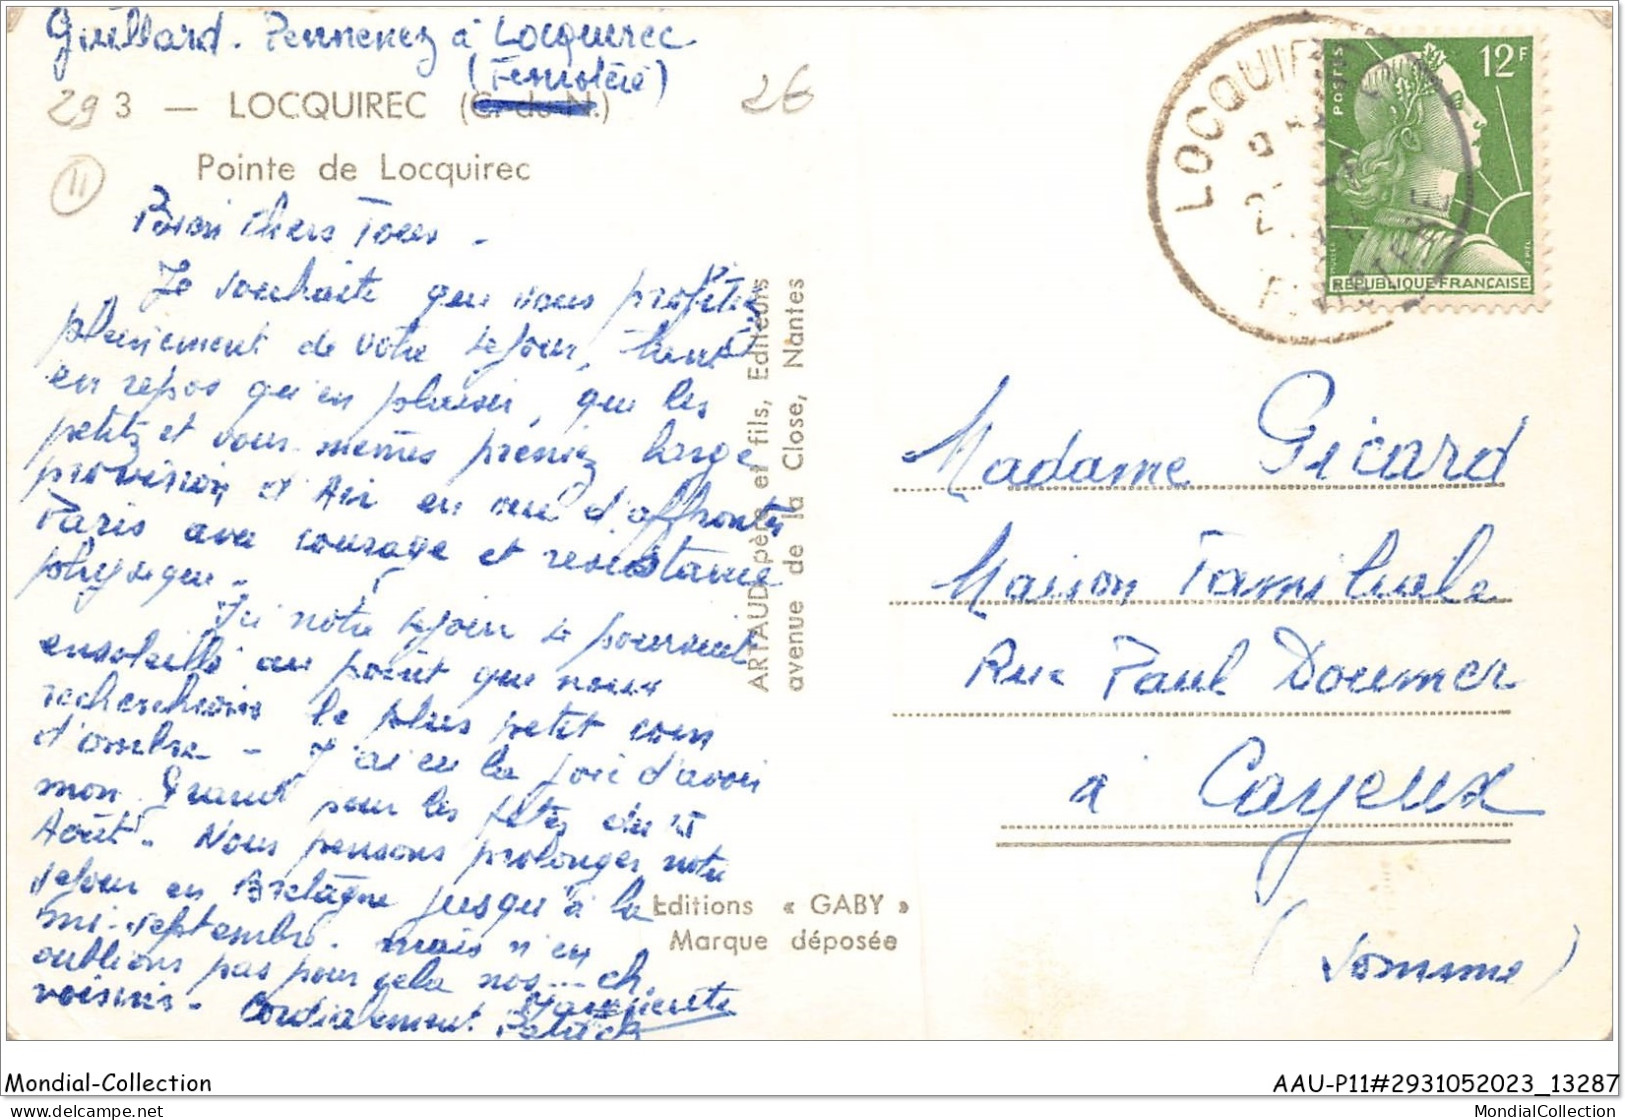 Guillard. Pennenez à Locquirec
(Finistère)
29 3 — LOCQUIREC (C.-du-N.)
26
11
Pointe de Locquirec
Bien Chers Tous -
Je souhaite que vous profitiez
pleinement de votre séjour, tant
en repos qu'en plaisir, que les
petits et vous-mêmes préniez large
provision d'Air en vue d'affronter
Paris avec courage et résistance
physique.
Ici notre séjour se poursuit
ensoleillé au point que nous
recherchions le plus petit coin
d'ombre - J'ai eu la joie d'avoir
mon grand pour les fêtes du 15
Août. Nous pensons prolonger notre
séjour en Bretagne jusqu'à la
mi-septembre. mais n'en
oublions pas pour cela nos ... ch.
voisins - Cordialement
Patrick
ARTAUD père et fils, Editeurs
avenue de la Close, Nantes
Editions « GABY »
Marque déposée
LOCQUIREC
FINISTERE
POSTES
12F
REPUBLIQUE FRANÇAISE
Madame Gicard
Maison Familiale
Rue Paul Doumer
à Cayeux
(Somme)
Mondial-Collection
AAU-P11#2931052023_13287
www.delcampe.net
MondialCollection